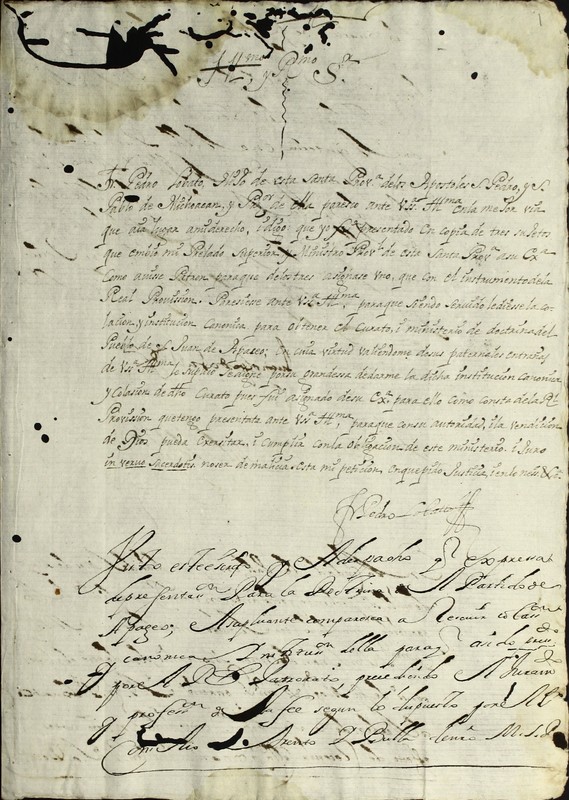 Yll.mo y R.mo S.r
Fr. Pedro Lobato, de esta Santa Prov.a delos Apostoles S. Pedro, y S.
Pablo de Michoacan, y de ella paresco ante V.S. Ill.ma en la mejor via
que aia lugar amiderecho, i digo: que yo presentado Con copia de tres sujetos
que embió mi Prelado Superior, y Ministro Prov.l de esta Santa Prov.a asu Ex.a
Como avise Patron paraque delostres asignase vno, que con el instrumento dela
Real Provission. Paresiese ante V.S. Ill.ma, paraque siendo servido lediese la co-
lacion, y institucion Canonica para obtener el Curato, i ministerio de doctrina del
Pueblo de S. Juan de Apaseo; en cuia virtud valiendome desus paternales entrañas
de V.S. Ill.ma le suplico sedigne por su grandessa dedarme la dicha Institucion canonica
y Colasion de dho Curato pues fui asignado de su Ex.a para ello como consta de la R.l
Provission quetengo presentada ante V.S. Ill.ma, paraque con su autoridad, i la vendicion
de Dios pueda Exersitar, i Cumplir con la obligacion de este ministerio. i Juro
in verbo Sacerdotis no ser de malicia esta mi peticion en que pido Justicia, i en lo ness.o &.a
Fr. Pedro Lobato
Junto este escrito y el despacho q.e expresa
de presentas.n Para la Doctrina del Partido de
Apaseo, el suplicante comparesca a recevir
y canonica Institus.n della para
por el R.l Patronato, precediendo el Juram.to
y profess.n de la fee segun lo dispuesto por el